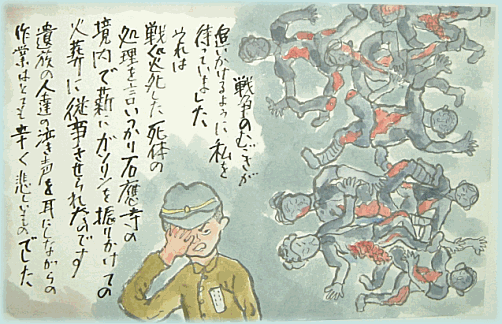 戦争のむごさが
追いかけるように私を
待っていました
それは
戦災死した死体の
処理を言いつかり石應寺の
境内で薪にガソリンを振りかけての
火葬に従事させられたのです
遺族の人達の泣き声を耳にしながらの
作業はとても辛く悲しいものでした